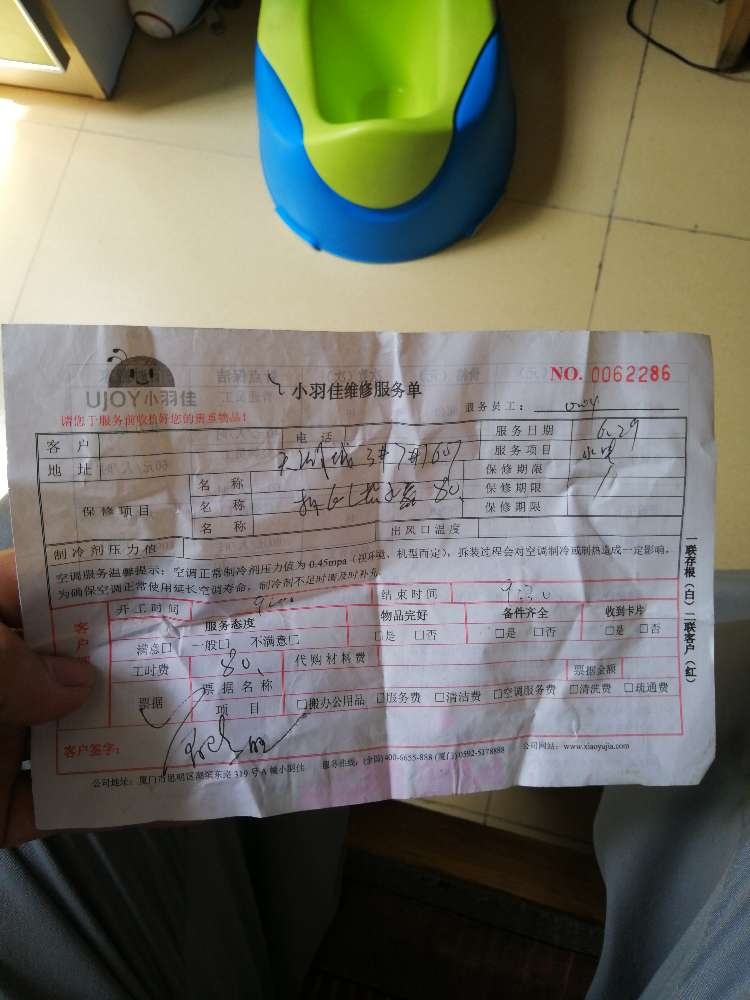 UJOY小羽佳
小羽佳维修服务单
NO. 0062286
请您于服务前收拾好您的贵重物品!
服务员工:
客 户 电 话 服务日期 6.29
地 址 3# 7#1607 服务项目
保修项目 名 称 保修期限
名 称 80 保修期限
名 称 保修期限
制冷剂压力值 出风口温度
空调服务温馨提示:空调正常制冷剂压力值为 0.45mpa(视环境、机型而定),拆装过程会对空调制冷或制热造成一定影响,
为确保空调正常使用延长空调寿命,制冷剂不足时需及时补充
开工时间 9:00 结束时间 9:30
客户 服务态度 物品完好 备件齐全 收到卡片
满意□ 一般□ 不满意□ □是 □否 □是 □否 □是 □否
工时费 80. 代购材料费
票据 票据名称 票据金额
项 目 □搬办公用品 □服务费 □清洁费 □空调服务费 □清洗费 □疏通费
客户签字:
公司地址:厦门市思明区湖滨东路 319 号 A 幢小羽佳 服务热线:(全国)400-6655-888 (厦门)0592-5178888 公司网站:www.xiaoyujia.com
一联存根(白)二联客户(红)